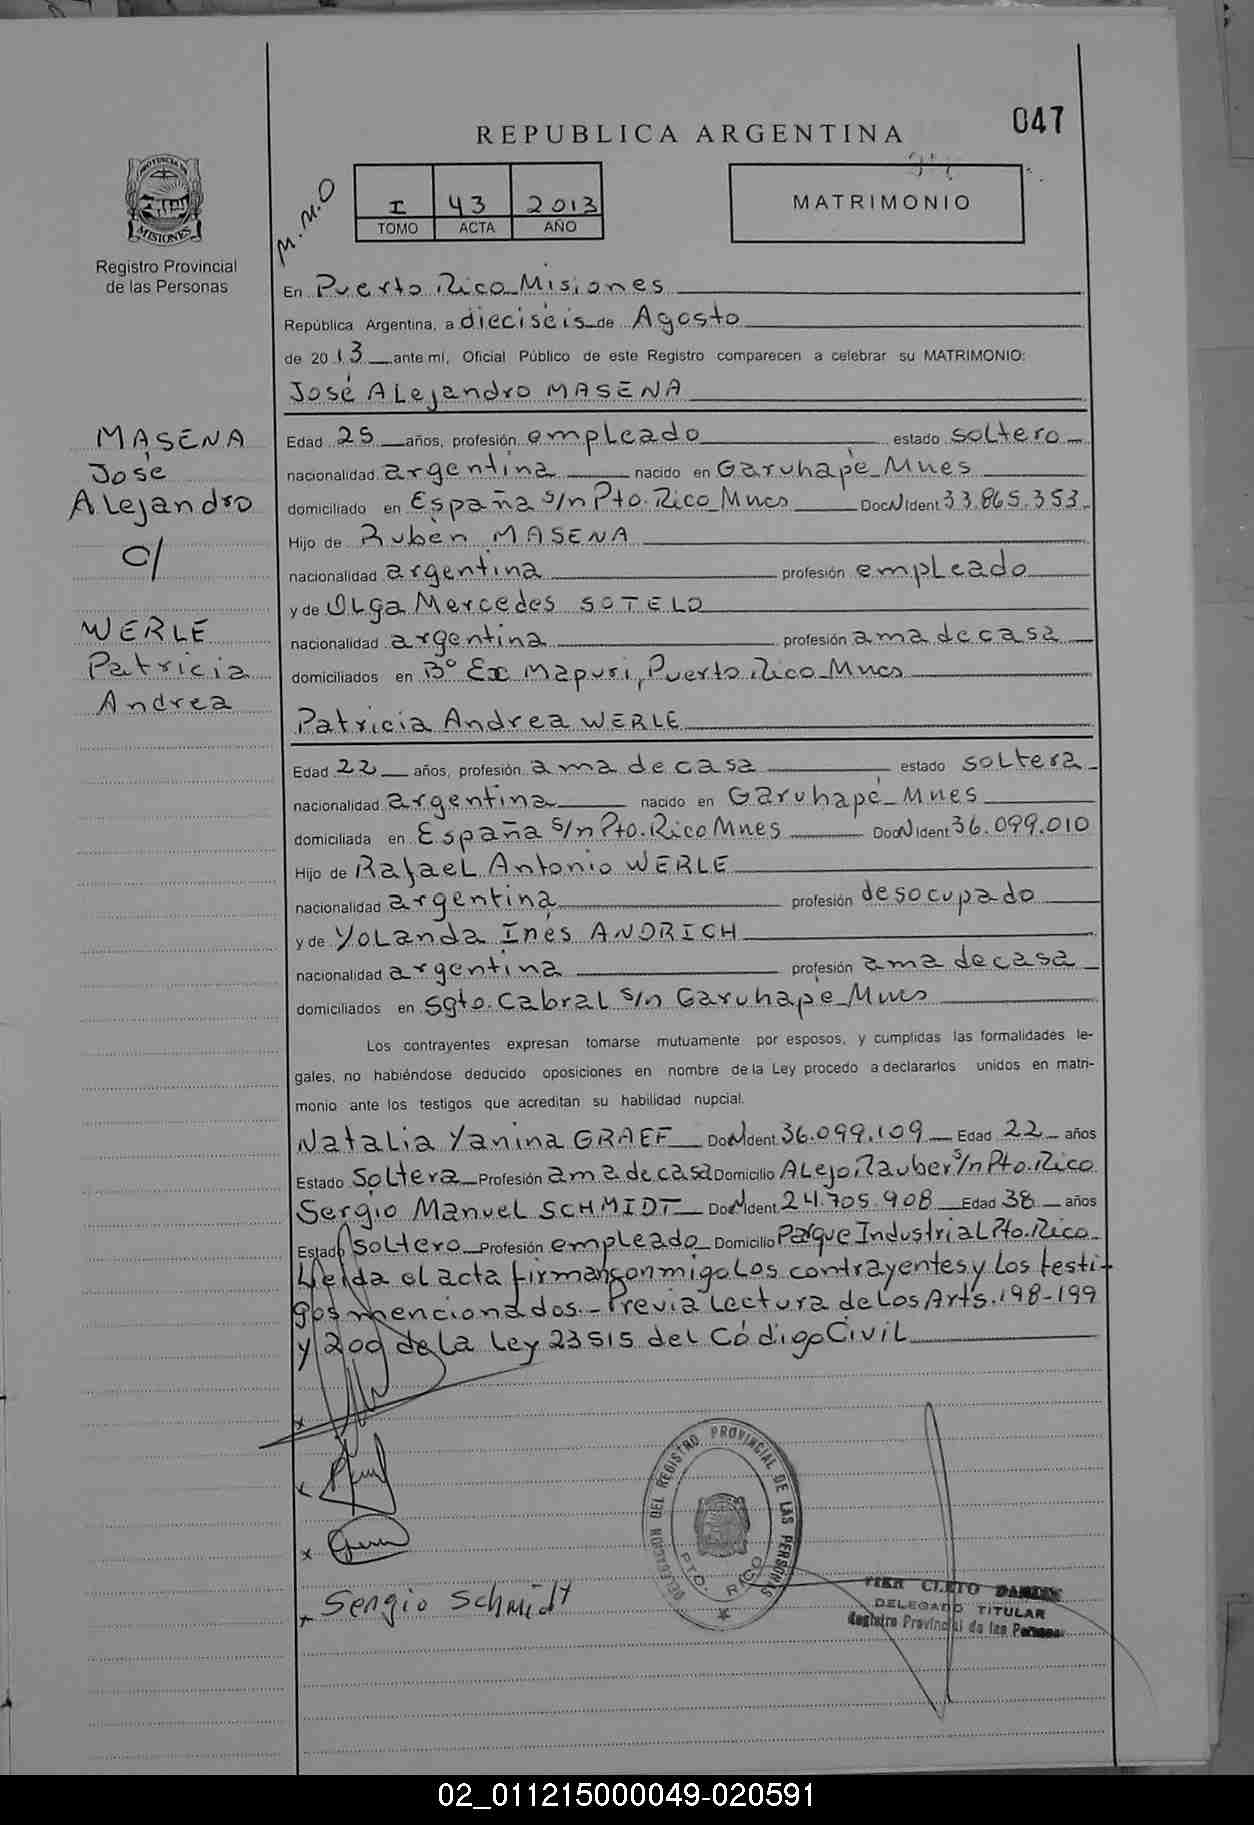 047
REPUBLICA ARGENTINA
M.M.O
I 43 2013
TOMO ACTA AÑO
MATRIMONIO
PROVINCIA DE
MISIONES
Registro Provincial
de las Personas
En Puerto Rico Misiones
República Argentina, a dieciséis de Agosto
de 2013 ante mí, Oficial Público de este Registro comparecen a celebrar su MATRIMONIO:
José Alejandro MASENA
MASENA
José
Alejandro
c/
WERLE
Patricia
Andrea
Edad 25 años, profesión empleado estado soltero
nacionalidad argentina nacido en Garuhapé Mnes
domiciliado en España s/n Pto. Rico Mnes Doc N Ident 33.865.353
Hijo de Rubén MASENA
nacionalidad argentina profesión empleado
y de Olga Mercedes SOTELO
nacionalidad argentina profesión ama de casa
domiciliados en B° Ex Mapuri, Puerto Rico Mnes
Patricia Andrea WERLE
Edad 22 años, profesión ama de casa estado soltera
nacionalidad argentina nacido en Garuhapé Mnes
domiciliada en España s/n Pto. Rico Mnes Doc N Ident 36.099.010
Hijo de Rafael Antonio WERLE
nacionalidad argentina profesión desocupado
y de Yolanda Inés ANDRICH
nacionalidad argentina profesión ama de casa
domiciliados en Sgto. Cabral s/n Garuhapé Mnes
Los contrayentes expresan tomarse mutuamente por esposos, y cumplidas las formalidades le-
gales, no habiéndose deducido oposiciones en nombre de la Ley procedo a declararlos unidos en matri-
monio ante los testigos que acreditan su habilidad nupcial.
Natalia Yanina GRAEF Doc N Ident 36.099.109 Edad 22 años
Estado Soltera Profesión ama de casa Domicilio Alejo Rauber s/n Pto. Rico
Sergio Manuel SCHMIDT Doc N Ident 24.705.908 Edad 38 años
Estado soltero Profesión empleado Domicilio Parque Industrial Pto. Rico
Leida el acta firman conmigo los contrayentes y los testi-
gos mencionados.- Previa lectura de los Arts. 198-199
y 200 de la Ley 23515 del Código Civil
x
x
x
x Sergio Schmidt
DELEGACION DEL REGISTRO PROVINCIAL DE LAS PERSONAS
PTO. RICO
CLETO
DELEGADO TITULAR
Registro Provincial de las Personas
02_011215000049-020591